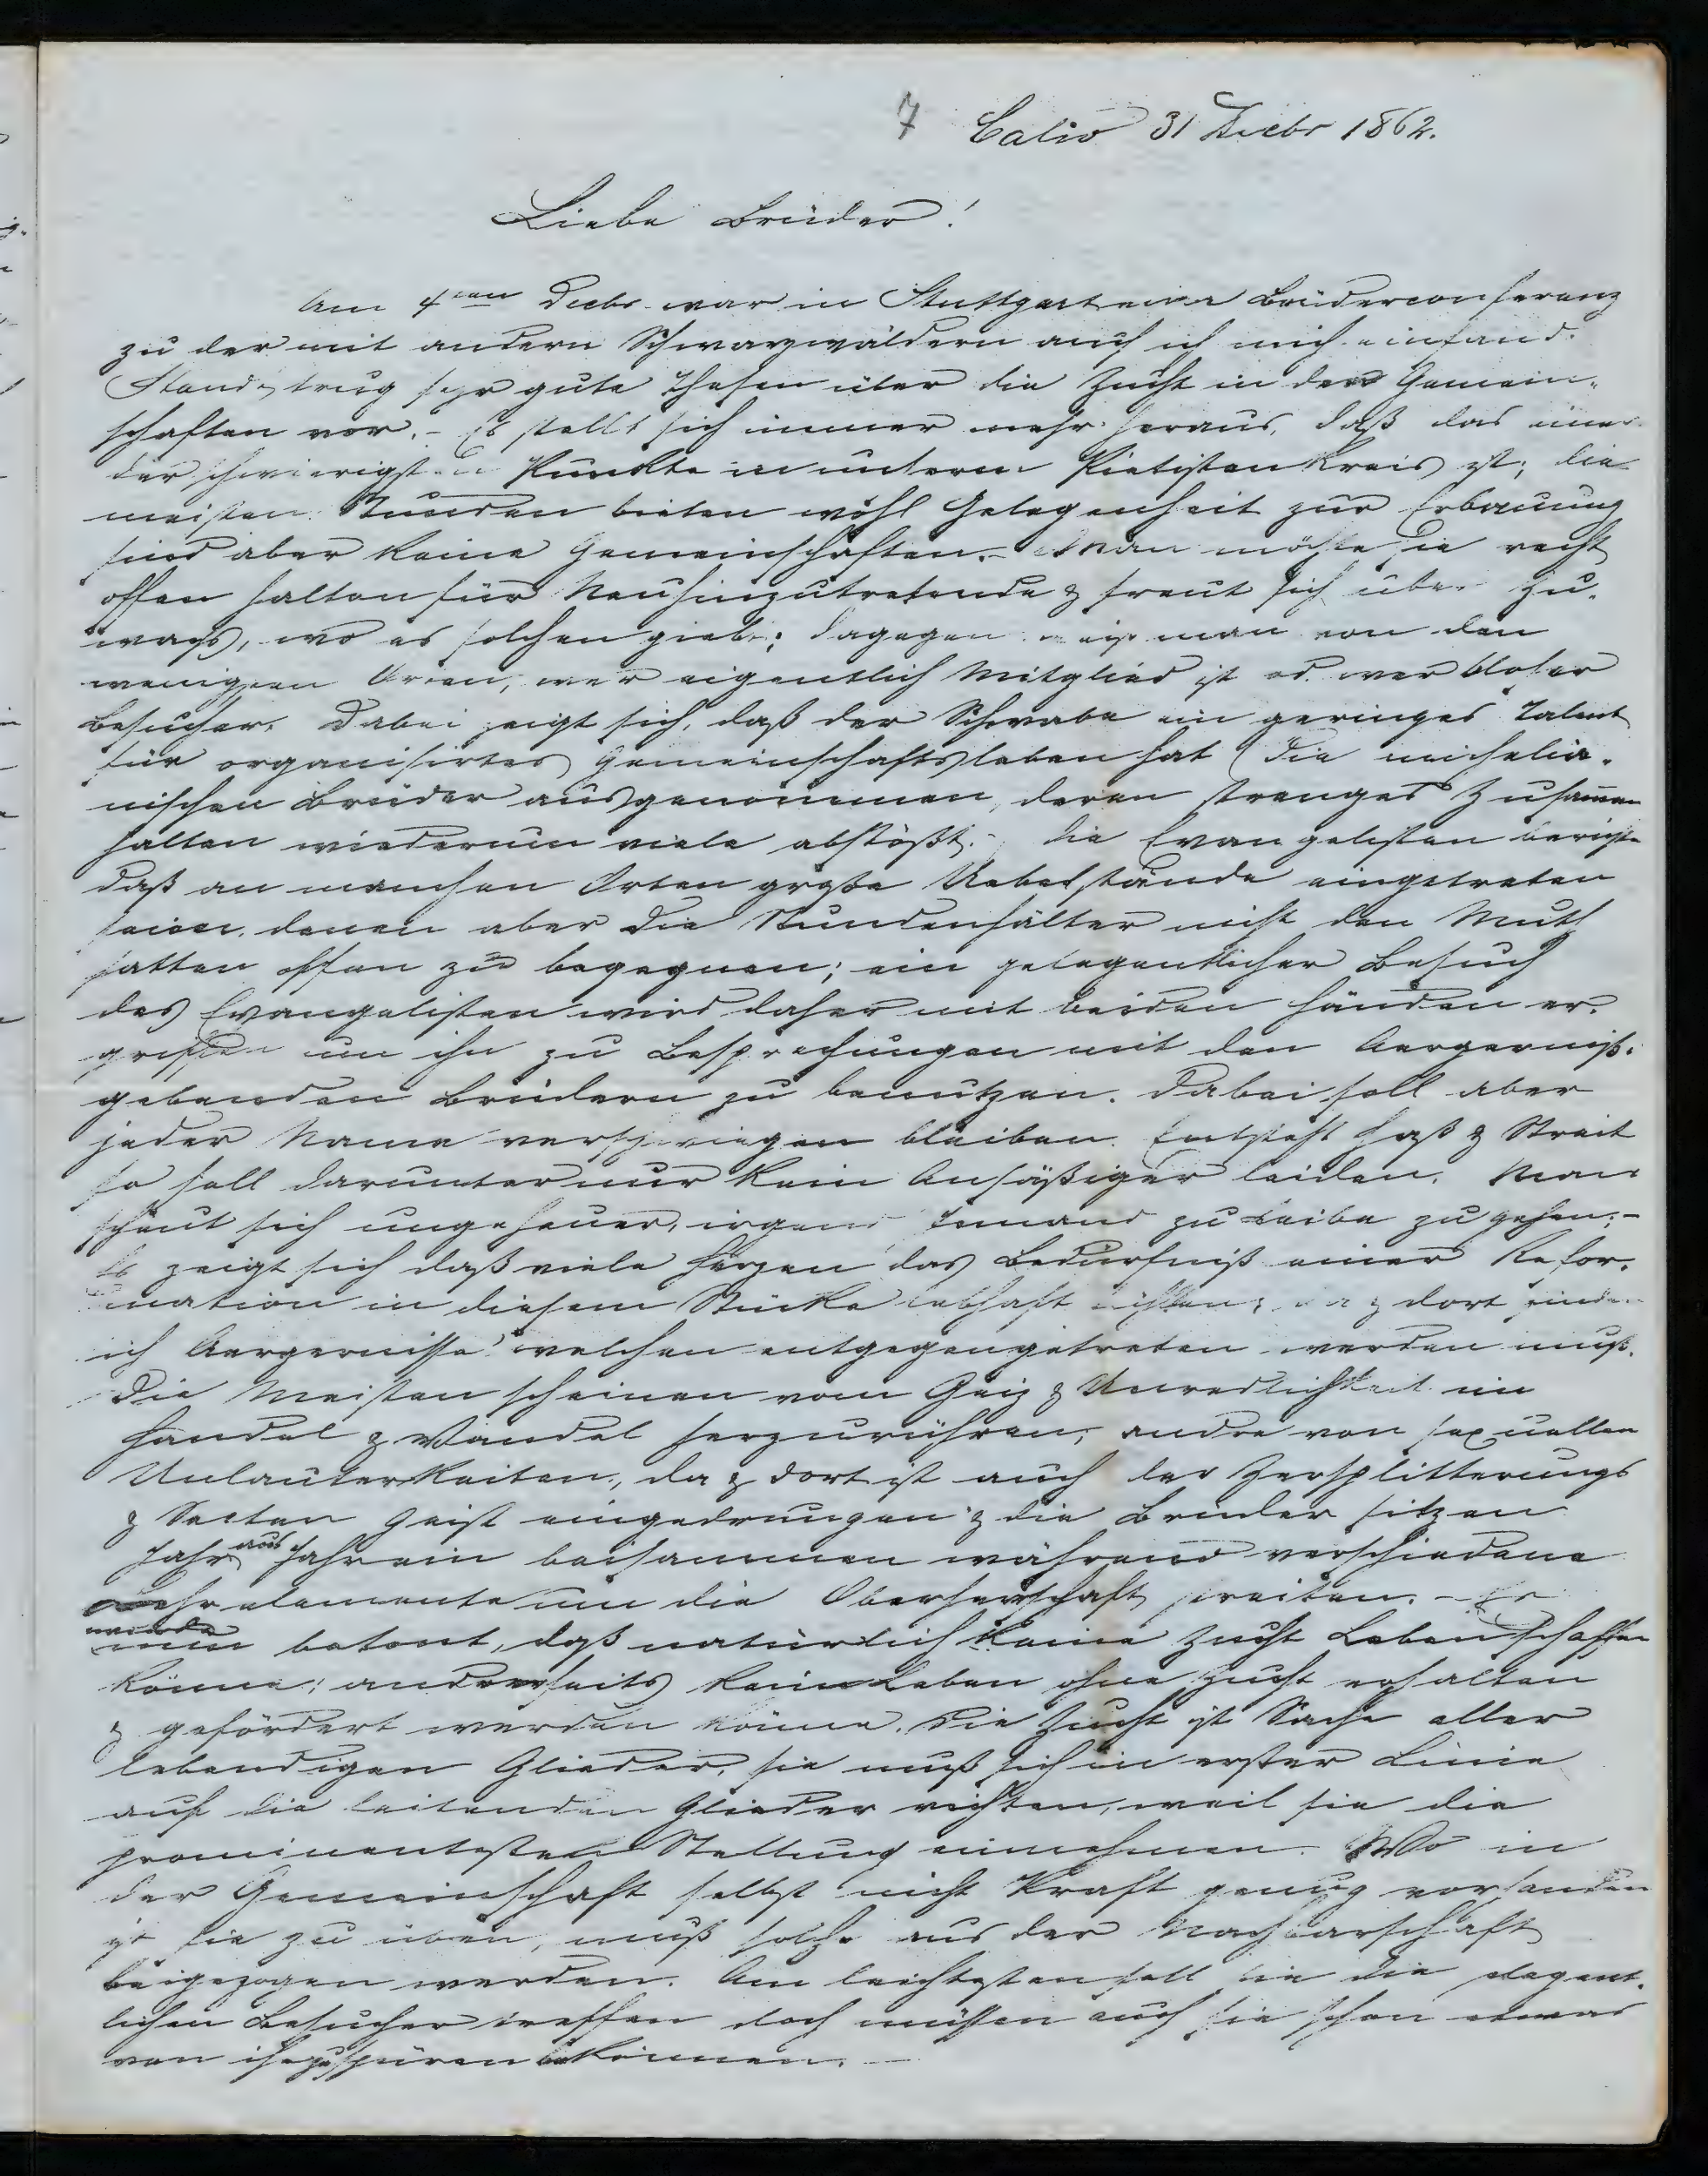 7 Calw 31 Decbr 1862.
Liebe Brüder!
Am 4ten Decbr war in Stuttgart eine Brüderconferenz
zu der mit andern Schwarzwäldern auch ich mich einfand.
Staudt trug sehr gute Thesen über die Zucht in den Gemein-
schaften vor. - Es stellt sich immer mehr heraus, daß das einer
der schwierigsten Punkte in unserm Pietistenkreis ist; die
meisten Stunden bieten wohl Gelegenheit zur Erbauung
sind aber keine Gemeinschaften. - Man möchte sie recht
offen halten für Neuhinzutretende & freut sich über Zu-
wachs, wo es solchen giebt; dagegen weiß man von den
wenigsten Orten, wer eigentlich Mitglied ist od. wer bloßer
Besucher. Dabei zeigt sich, daß der Schwabe ein geringes Talent
für organisirtes Gemeinschaftsleben hat (die michelia-
nischen Brüder ausgenommen, deren strenges Zusammen
halten wiederum viele abstößt. Die Evangelisten berichten
daß an manchen Orten große Uebelstände eingetreten
seien, denen aber die Stundenhälter nicht den Muth
hatten offen zu begegnen; ein gelegentlicher Besuch
des Evangelisten wird daher mit beiden Händen er-
griffen um ihn zu Besprechungen mit den Aergerniß-
gebenden Brüdern zu benutzen. Dabei soll aber
jeder Name verschwiegen bleiben. Entsteht Haß & Streit
so soll darunter nur kein Ansäßiger leiden. Man
scheut sich ungeheuer, irgend Jemand zu Leibe zu gehen; -
Es zeigt sich daß viele Herzen das Bedürfniß einer Refor-
mation in diesem Stücke lebhaft fühlen; da & dort finden
sich Aergernisse welchen entgegengetreten werden muß.
Die Meisten scheinen vom Geiz & Unredlichkeit im
Handel & Wandel herzurühren, andre von sexuellen
Unlauterkeiten, da & dort ist auch der Zersplitterungs
& Secten Geist eingedrungen & die Brüder sitzen
Jahr aus Jahr ein beisammen während verschiedene
Lehrelemente um die Oberherrschaft streiten. - Es
wurde nun betont, daß natürlich keine Zucht Leben schaffen
könne; anderseits kein Leben ohne Zucht erhalten
& gefördert werden könne. Die Zucht ist Sache aller
lebendigen Glieder, sie muß sich in erster Linie
auf die leitenden Glieder richten, weil sie die
prominentesten Stellung einnehmen. Wo in
der Gemeinschaft selbst nicht Kraft genug vorhanden
ist sie zu üben, muß solche aus der Nachbarschaft
beigezogen werden. Am leichtesten soll sie die gelegent-
lichen Besucher treffen doch müssen auch sie schon etwas
von ihr zu spüren bekommen. -